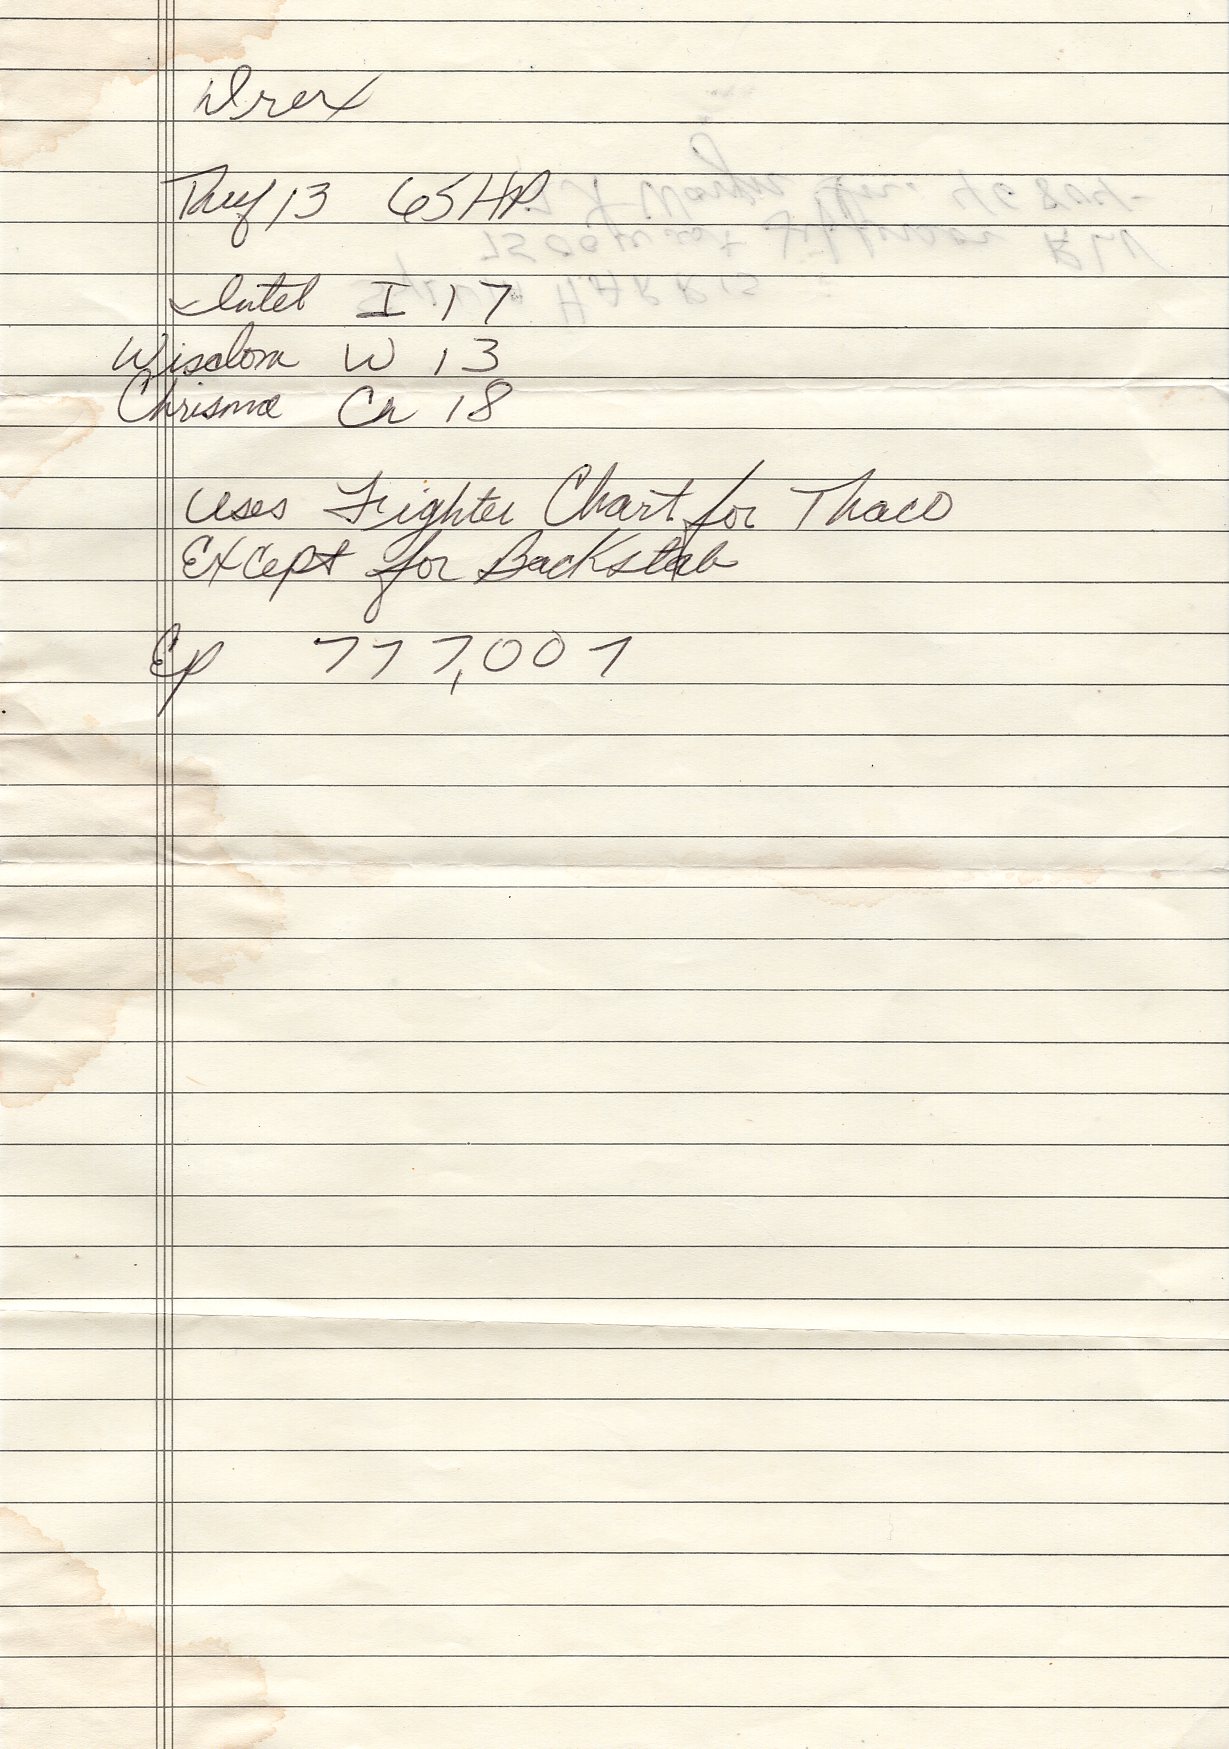 Drex
Thef 13 65 HP
Intel I 17
Wisdom W 13
Chrisma Ch 18
uses Fighter Chart for Thaco
Except for Backstab
Ep 777,007